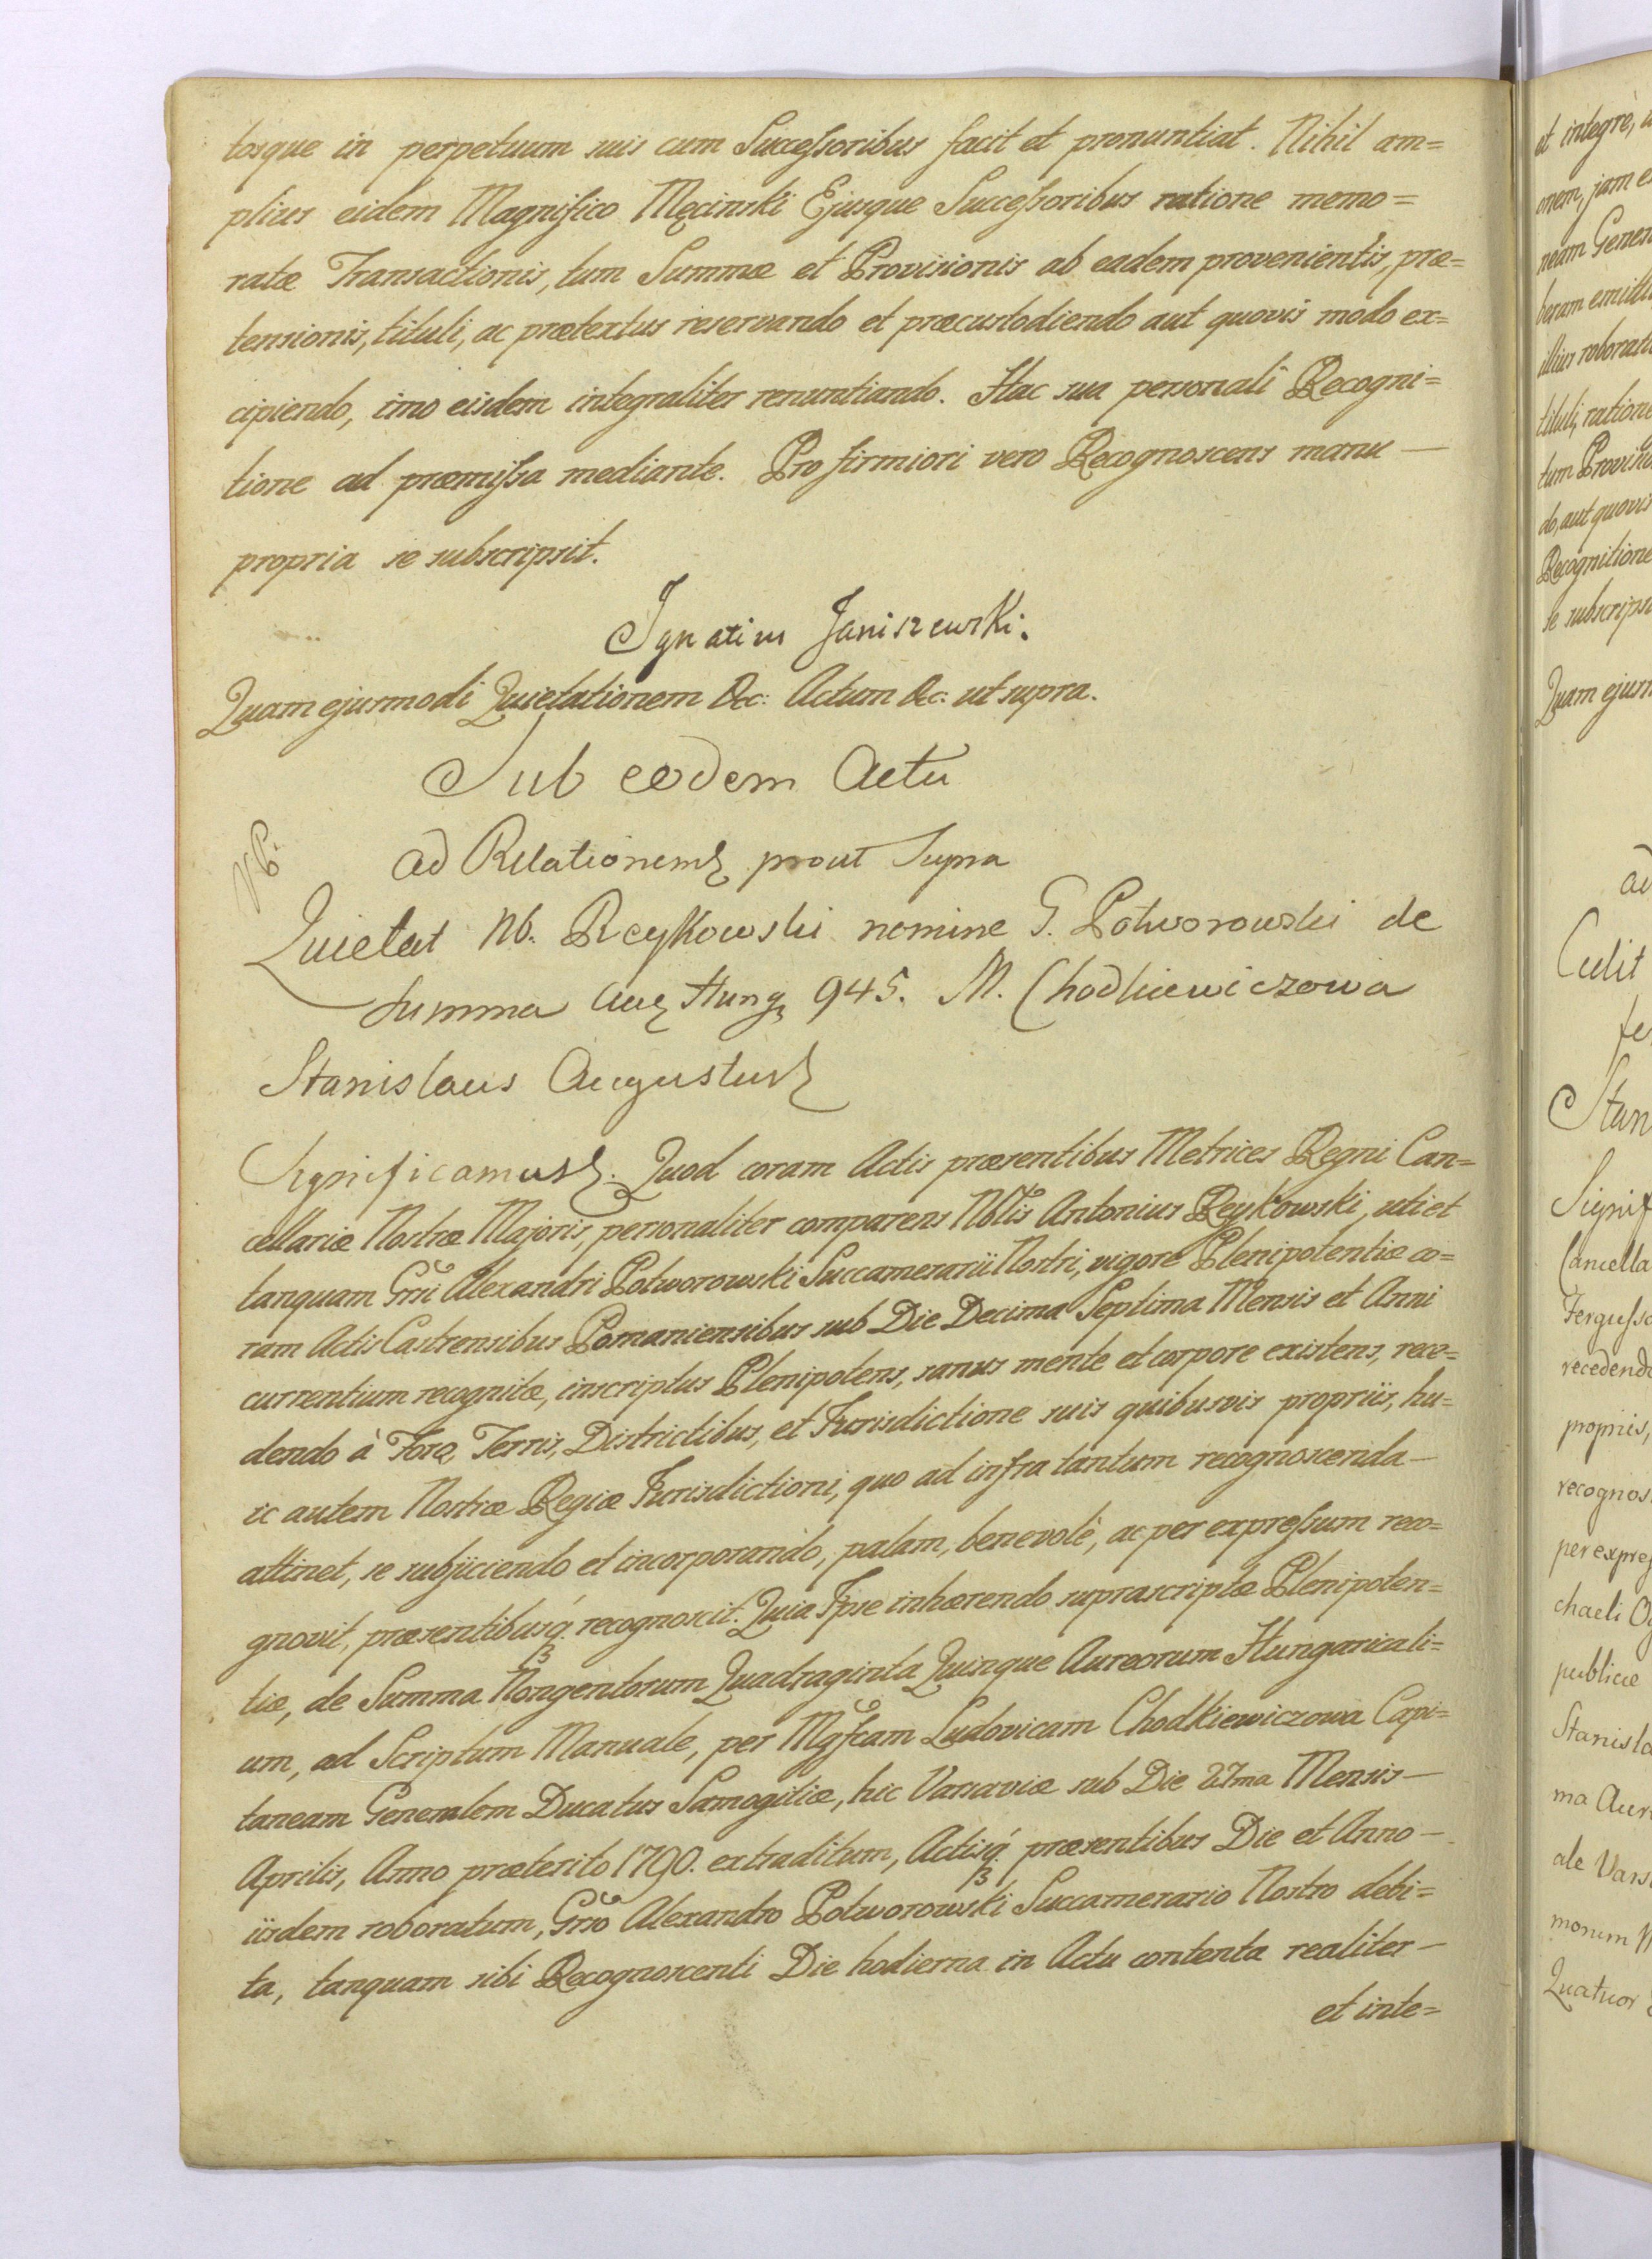 tosque in perpetuum suis cum Successoribus facit et pronuntiat. Nihil am=
plius eidem Magnifico Męcinski Ejusque Successoribus ratione memo=
ratæ Transactionis, tum Summæ et Provisionis ab eadem provenientis, præ=
tensionis, tituli, ac prætextus reservando et præcustodiendo aut quovis modo ex=
cipiendo, imo eisdem integraliter renuntiando. Hac sua personali Recogni=
tione ad præmissa mediante. Pro firmiori vero Recognoscens manu —
propria se subscripsit.
Ignatius Janiszewski.
Quam ejusmodi Quietationem &c: Actum &c: ut supra.
Sub eodem Actu
ad Relationem prout Supra
NB.
Quietat Nb. Reykowski nomine G. Potworowski de
Summa Aur Hung 945. M. Chodkiewiczowa
Stanislaus Augustus
Significamus. Quod coram Actis præsentibus Metrices Regni Can=
cellariæ Nostræ Majoris, personaliter comparens Nbłis Antonius Reykowski, uti et
tanquam Grsi Alexandri Potworowski Succamerarii Nostri, vigore Plenipotentiæ co=
ram Actis Castrensibus Posnaniensibus sub Die Decima Septima Mensis et Anni
currentium recognitæ, inscriptus Plenipotens, sanus mente et corpore existens, rece=
dendo à Foro, Terris, Districtibus, et Jurisdictione suis quibusvis propriis, hu=
ic autem Nostræ Regiæ Jurisdictioni, quo ad infra tantum recognoscenda —
attinet, se subjiciendo et incorporando, palam, benevolè, ac per expressum reco=
gnovit, præsentibusq́. recognoscit. Quia Ipse inhærendo suprascriptæ Plenipoten=
tiæ, de Summa Nongentorum Quadraginta Quinque Aureorum Hungaricali=
um, ad Scriptum Manuale, per Mgfcam Ludovicam Chodkiewiczowa Capi=
taneam Generalem Ducatus Samogitiæ, hic Varsaviæ sub Die 27ma Mensis —
Aprilis, Anno præterito 1790. extraditum, Actisq́. præsentibus Die et Anno —
iisdem roboratum, Grso Alexandro Potworowski Succamerario Nostro debi=
ta, tanquam sibi Recognoscenti Die hodierna in Actu contenta realiter —
et inte=
et integrè,
onem, jam
neam Gener
beram emitti
illius roborati
tituli, ratione
tum Provisio
do, aut quovis
Recognitione
se subscripsi
Quam ejusm
ad
Stan
Signif
Cancella
Fergusso
recedendo
propriis,
recognos
per expres
chaeli
publicæ
Stanisla
ma Aur
ale Vars
Quatuor